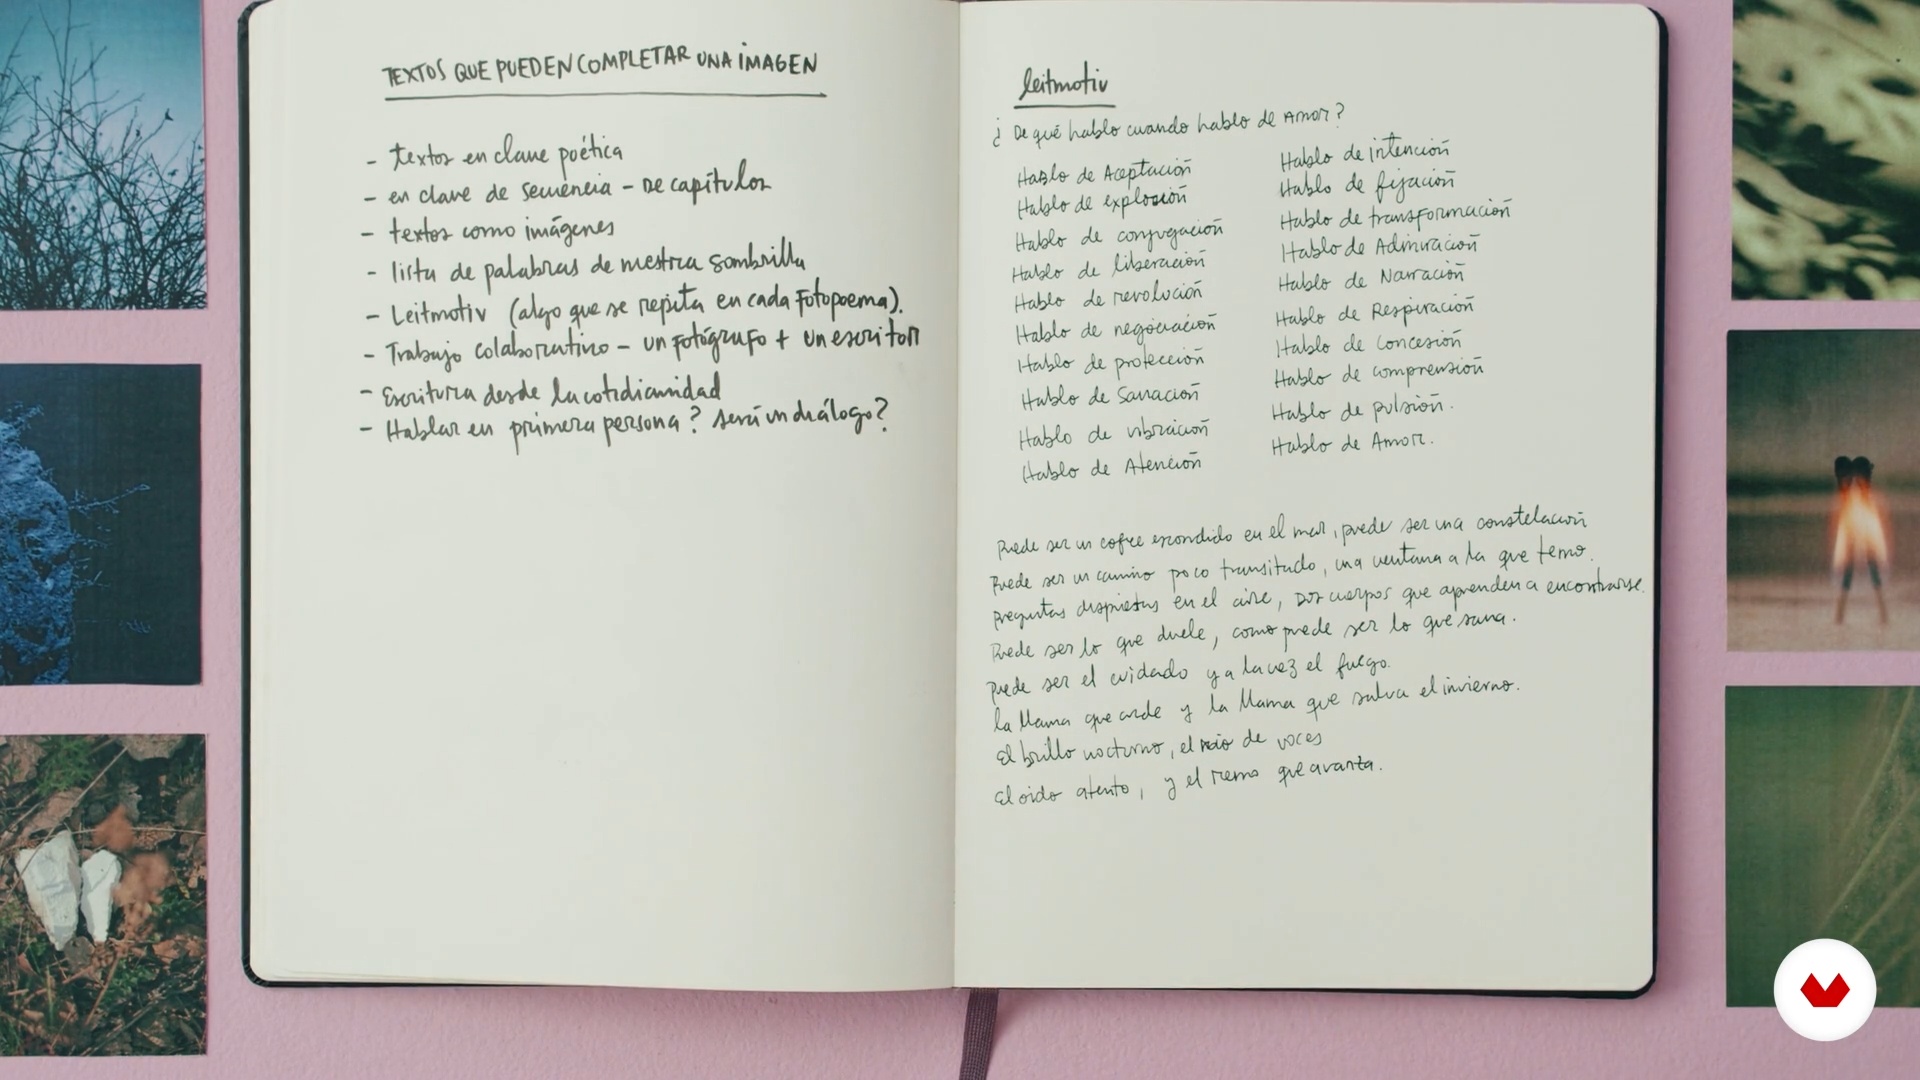 TEXTOS QUE PUEDEN COMPLETAR UNA IMAGEN
- textos en clave poética
- en clave de secuencia - De capítulos
- textos como imágenes
- lista de palabras de nuestra sombrilla
- Leitmotiv (algo que se repita en cada Fotopoema).
- Trabajo colaborativo - un fotógrafo + un escritor
- Escritura desde la cotidianidad
- Hablar en primera persona? será un diálogo?
leitmotiv
¿ De qué hablo cuando hablo de Amor?
Hablo de Aceptación
Hablo de explosión
Hablo de conjugación
Hablo de liberación
Hablo de revolución
Hablo de negociación
Hablo de protección
Hablo de Sanación
Hablo de vibración
Hablo de Atención
Hablo de intención
Hablo de fijación
Hablo de transformación
Hablo de Admiración
Hablo de Narración
Hablo de Respiración
Hablo de Concesión
Hablo de comprensión
Hablo de pulsión.
Hablo de Amor.
Puede ser un cofre escondido en el mar, puede ser una constelación
Puede ser un camino poco transitado, una ventana a la que temo.
Preguntas dispuestas en el aire, Dos cuerpos que aprenden a encontrarse.
Puede ser lo que duele, como puede ser lo que sana.
Puede ser el cuidado y a la vez el fuego.
la llama que arde y la llama que salva el invierno.
El brillo nocturno, el de voces
El oido atento, y el remo que avanza.